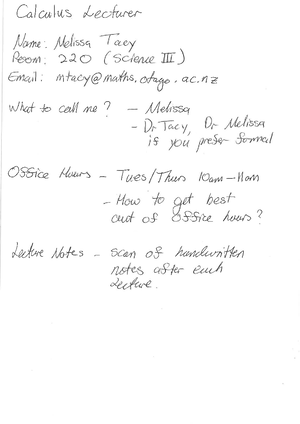 Calculus Lecturer
Name: Melissa Tacy
Room: 220 (Science III)
Email: mtacy@maths.otago.ac.nz
What to call me? - Melissa
- Dr Tacy, Dr Melissa
if you prefer formal
Office Hours - Tues/Thurs 10am-11am
- How to get best
out of office hours?
Lecture Notes - scan of handwritten
notes after each
lecture.